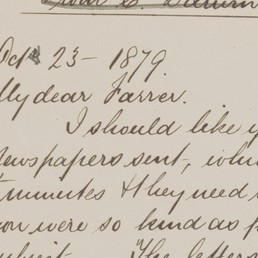 Oct 23 - 1879.
My dear Farrer.
I should like y
newspapers sent, whi
minutes & they need
you were so kind as p
The letters